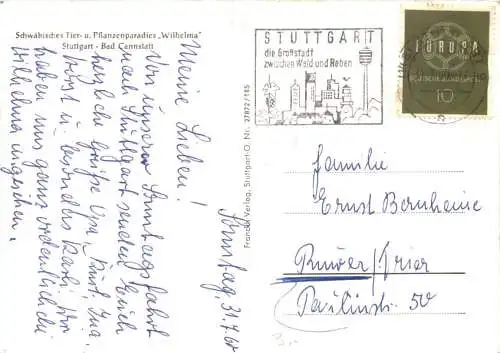 Schwäbisches Tier- u. Pflanzenparadies „Wilhelma"
Stuttgart - Bad Cannstatt
Sonntag, 31.7.60
Meine Lieben!
Von unserer Sonntagsfahrt
nach Stuttgart senden Euch
herzliche Grüße Opa,
haben uns ganz ordentlich die
Wilhelma angesehen.
Franckh Verlag, Stuttgart-O. Nr. 27872/185
STUTTGART
die Großstadt
zwischen Wald und Reben
EUROPA
DEUTSCHE BUNDESPOST
10
Familie
Ernst Bernheine
Ruwer/Trier
Paulinstr. 50
3,-